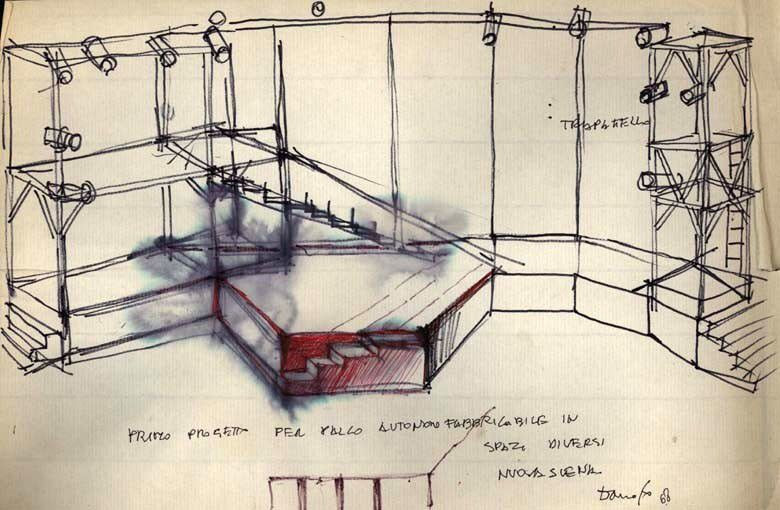 PRIMO PROGETTO PER PALCO AUTONOMO FABBRICABILE IN
SPAZI DIVERSI
NUOVA SCENA
Dario Fo 68